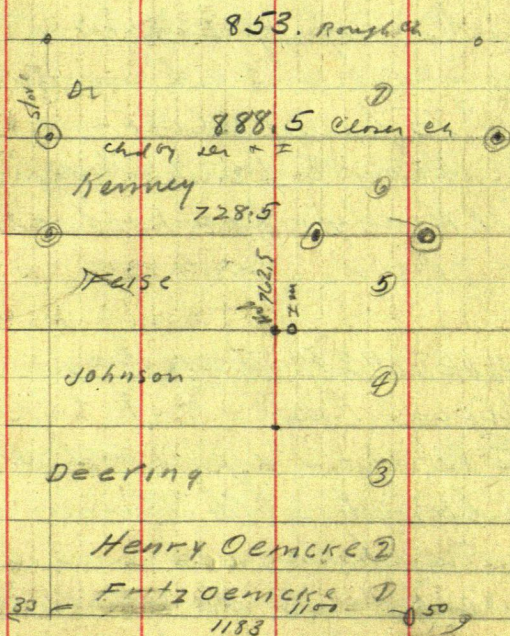 853. Rough Ch
stone
Dr 7
888.5 Closer ch
Chd by
Kenney 6
728.5
Feise 5
762.5
I m
Johnson 4
Deering 3
Henry Oemcke 2
Fritz Oemcke 1
33 1100 50
1183